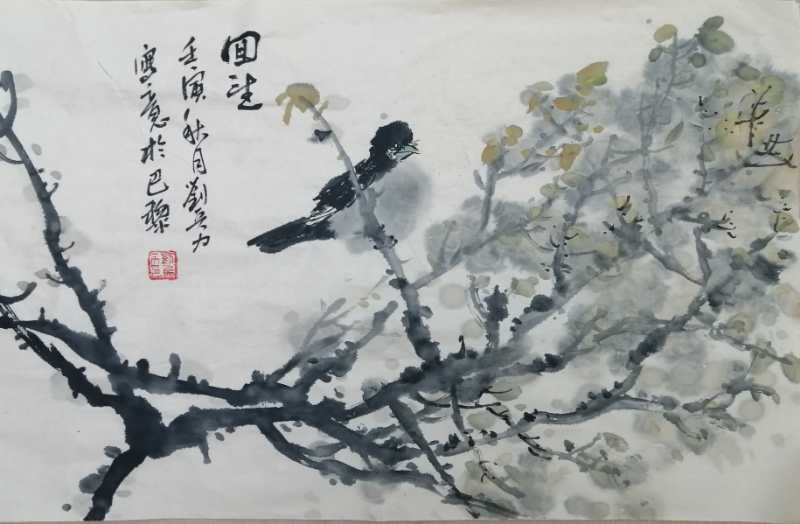 囬望
壬寅秋月劉力
寫意於巴黎